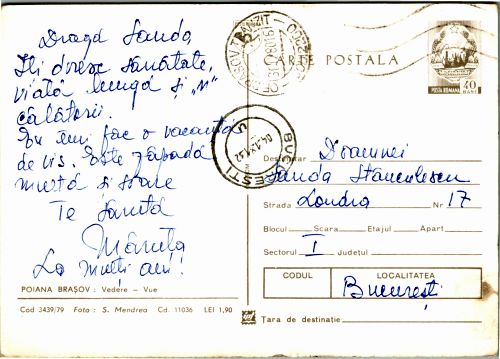 Dragă Sanda,
Îți doresc sănătate,
viață lungă și "n"
călătorii.
Eu îmi fac o vacanță
de vis. Este zăpadă
multă și soare
Te sărută
La mulți ani!
POIANA BRAȘOV : Vedere - Vue
Cod 3439/79 Foto : S. Mendrea Cd. 11036 LEI 1,90
CARTE POSTALA
POSTA ROMANA
40
BANI
BUCUREȘTI
Destinatar Doamnei
Sanda Stănculescu
Strada Londra Nr 17
Blocul Scara Etajul Apart
Sectorul I Județul
CODUL LOCALITATEA
București
Țara de destinație